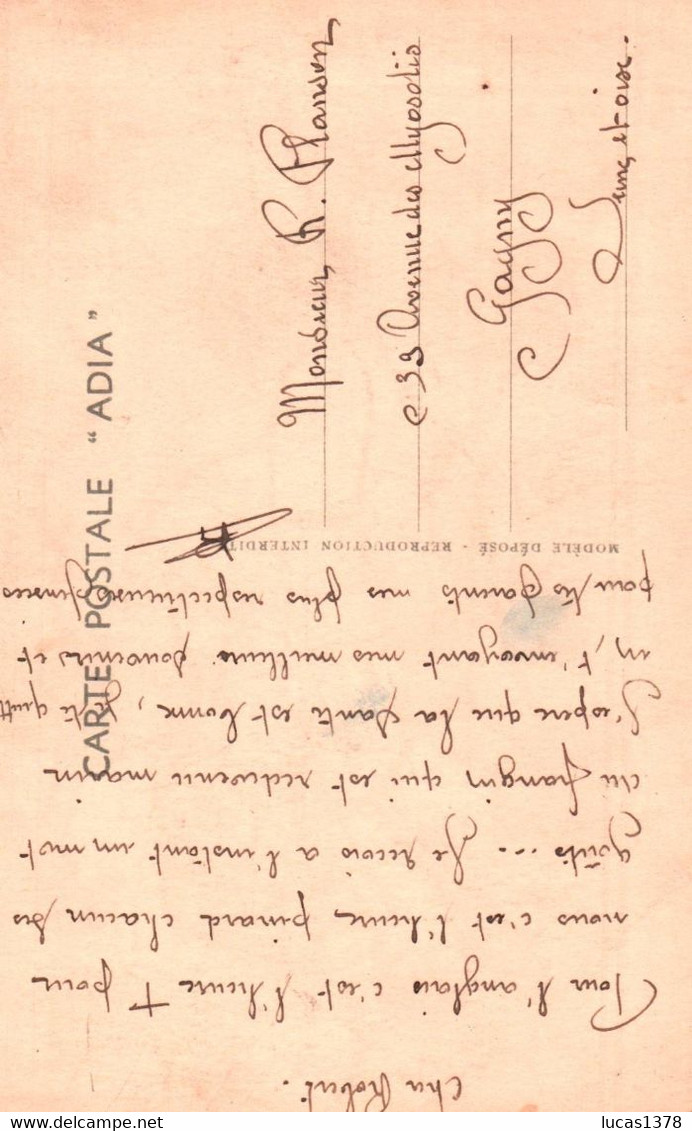 CARTE POSTALE "ADIA"
Cher Robert.
Pour l'anglais c'est l'heure T pour
nous c'est l'heure pinard chacun ses
goûts ... Je reçois a l'instant un mot
du frangin qui est redevenu marin
J'espere que la santé est bonne, Je te quitte
en t'envoyant mes meilleurs souvenirs et
pour tes parents mes plus respectueuses pensées
MODÈLE DÉPOSÉ - REPRODUCTION INTERDITE
Monsieur R. Planson
33 Avenue des Myosotis
Gagny
Seine et oise.
lucas1378